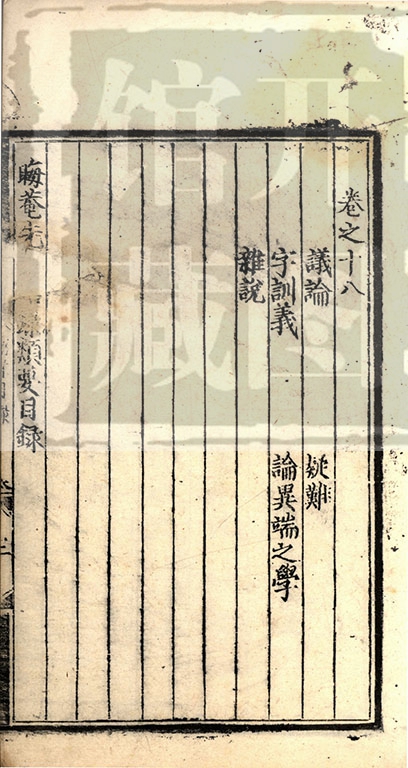 卷之十八
議論 疑難
字訓義 論異端之學
雜說
晦菴先 錄類要目録